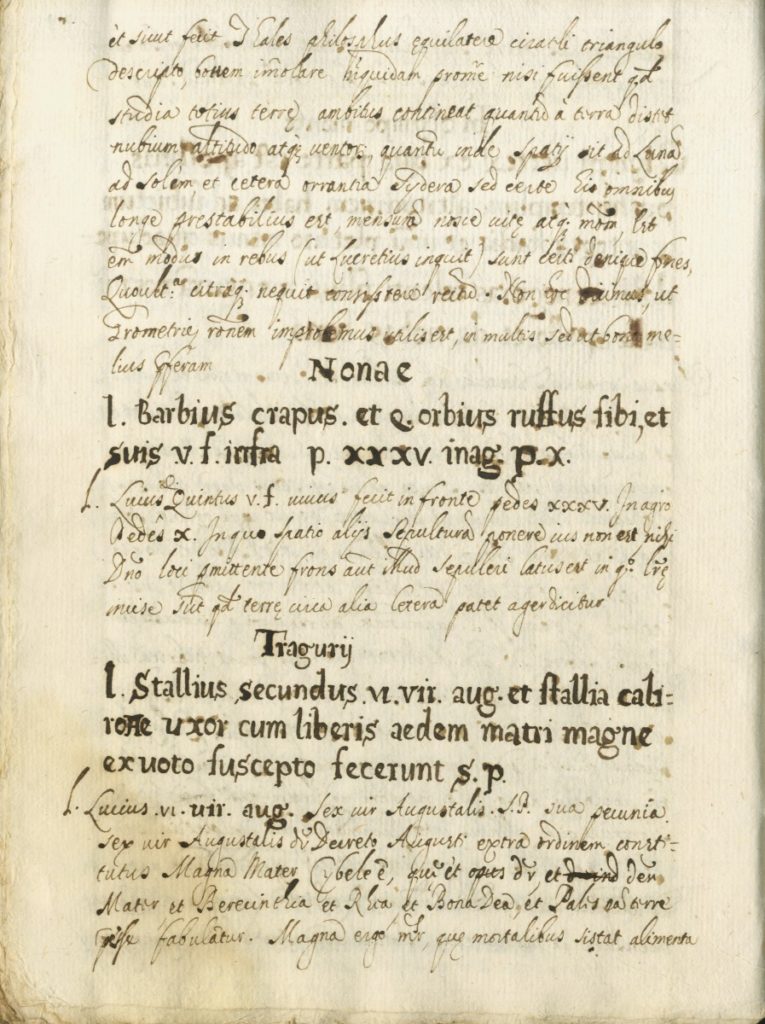 et sicut fecit Thales philosophus equilatere circuli triangulo
descripto, bovem imolare hi quidam nisi fuissent qd
studia totius terrę ambitus contineat quantū a terra distet
nubium altitudo atq; ventor, quantū inde spatij sit ad Lunā
ad solem et cetera orrantia sydera sed certe Eis omnibus
longe prestabilius est, mensurā nosce vitę atq;
modus in rebus (ut Lucretius inquit) sunt certi deniq;e fines,
citraq; nequit consistere rectū. Non dicimus, ut
Geometrię ronem improbemus utilis est, in multis sed at me-
lius
Nonae
L. Barbius crapus. et Q. orbius ruffus sibi, et
suis .v. f. infra p. xxxv. inag. p. x.
L. Lucius, Quintus v. f. vivus fecit in fronte pedes xxxv. In agro
Pedes x. In quo spatio alijs sepulturā ponere ius non est nisi
Dno loci pmittente frons aut illud sepulleri latus est in q°
incise st qd terrę circa alia letera patet ager dicitur
Tragurij
L. Stallius secundus .vi. vir. aug. et stallia cali=
rone uxor cum liberis aedem matri magne
ex voto suscepto fecerunt s. p.
L. Lucius .vi. vir. aug. sex vir Augustalis. S.P. sua pecunia
sex vir Augustalis Decreto Augusti extra ordinem consti=
tutus Magna Mater Cybele ē, que et opis dr, et
Mater et Berecinthia et Rhea et Bona Dea, et Palis terre
fabulatur. Magna ergo mr, quę mortalibus sistat alimenta